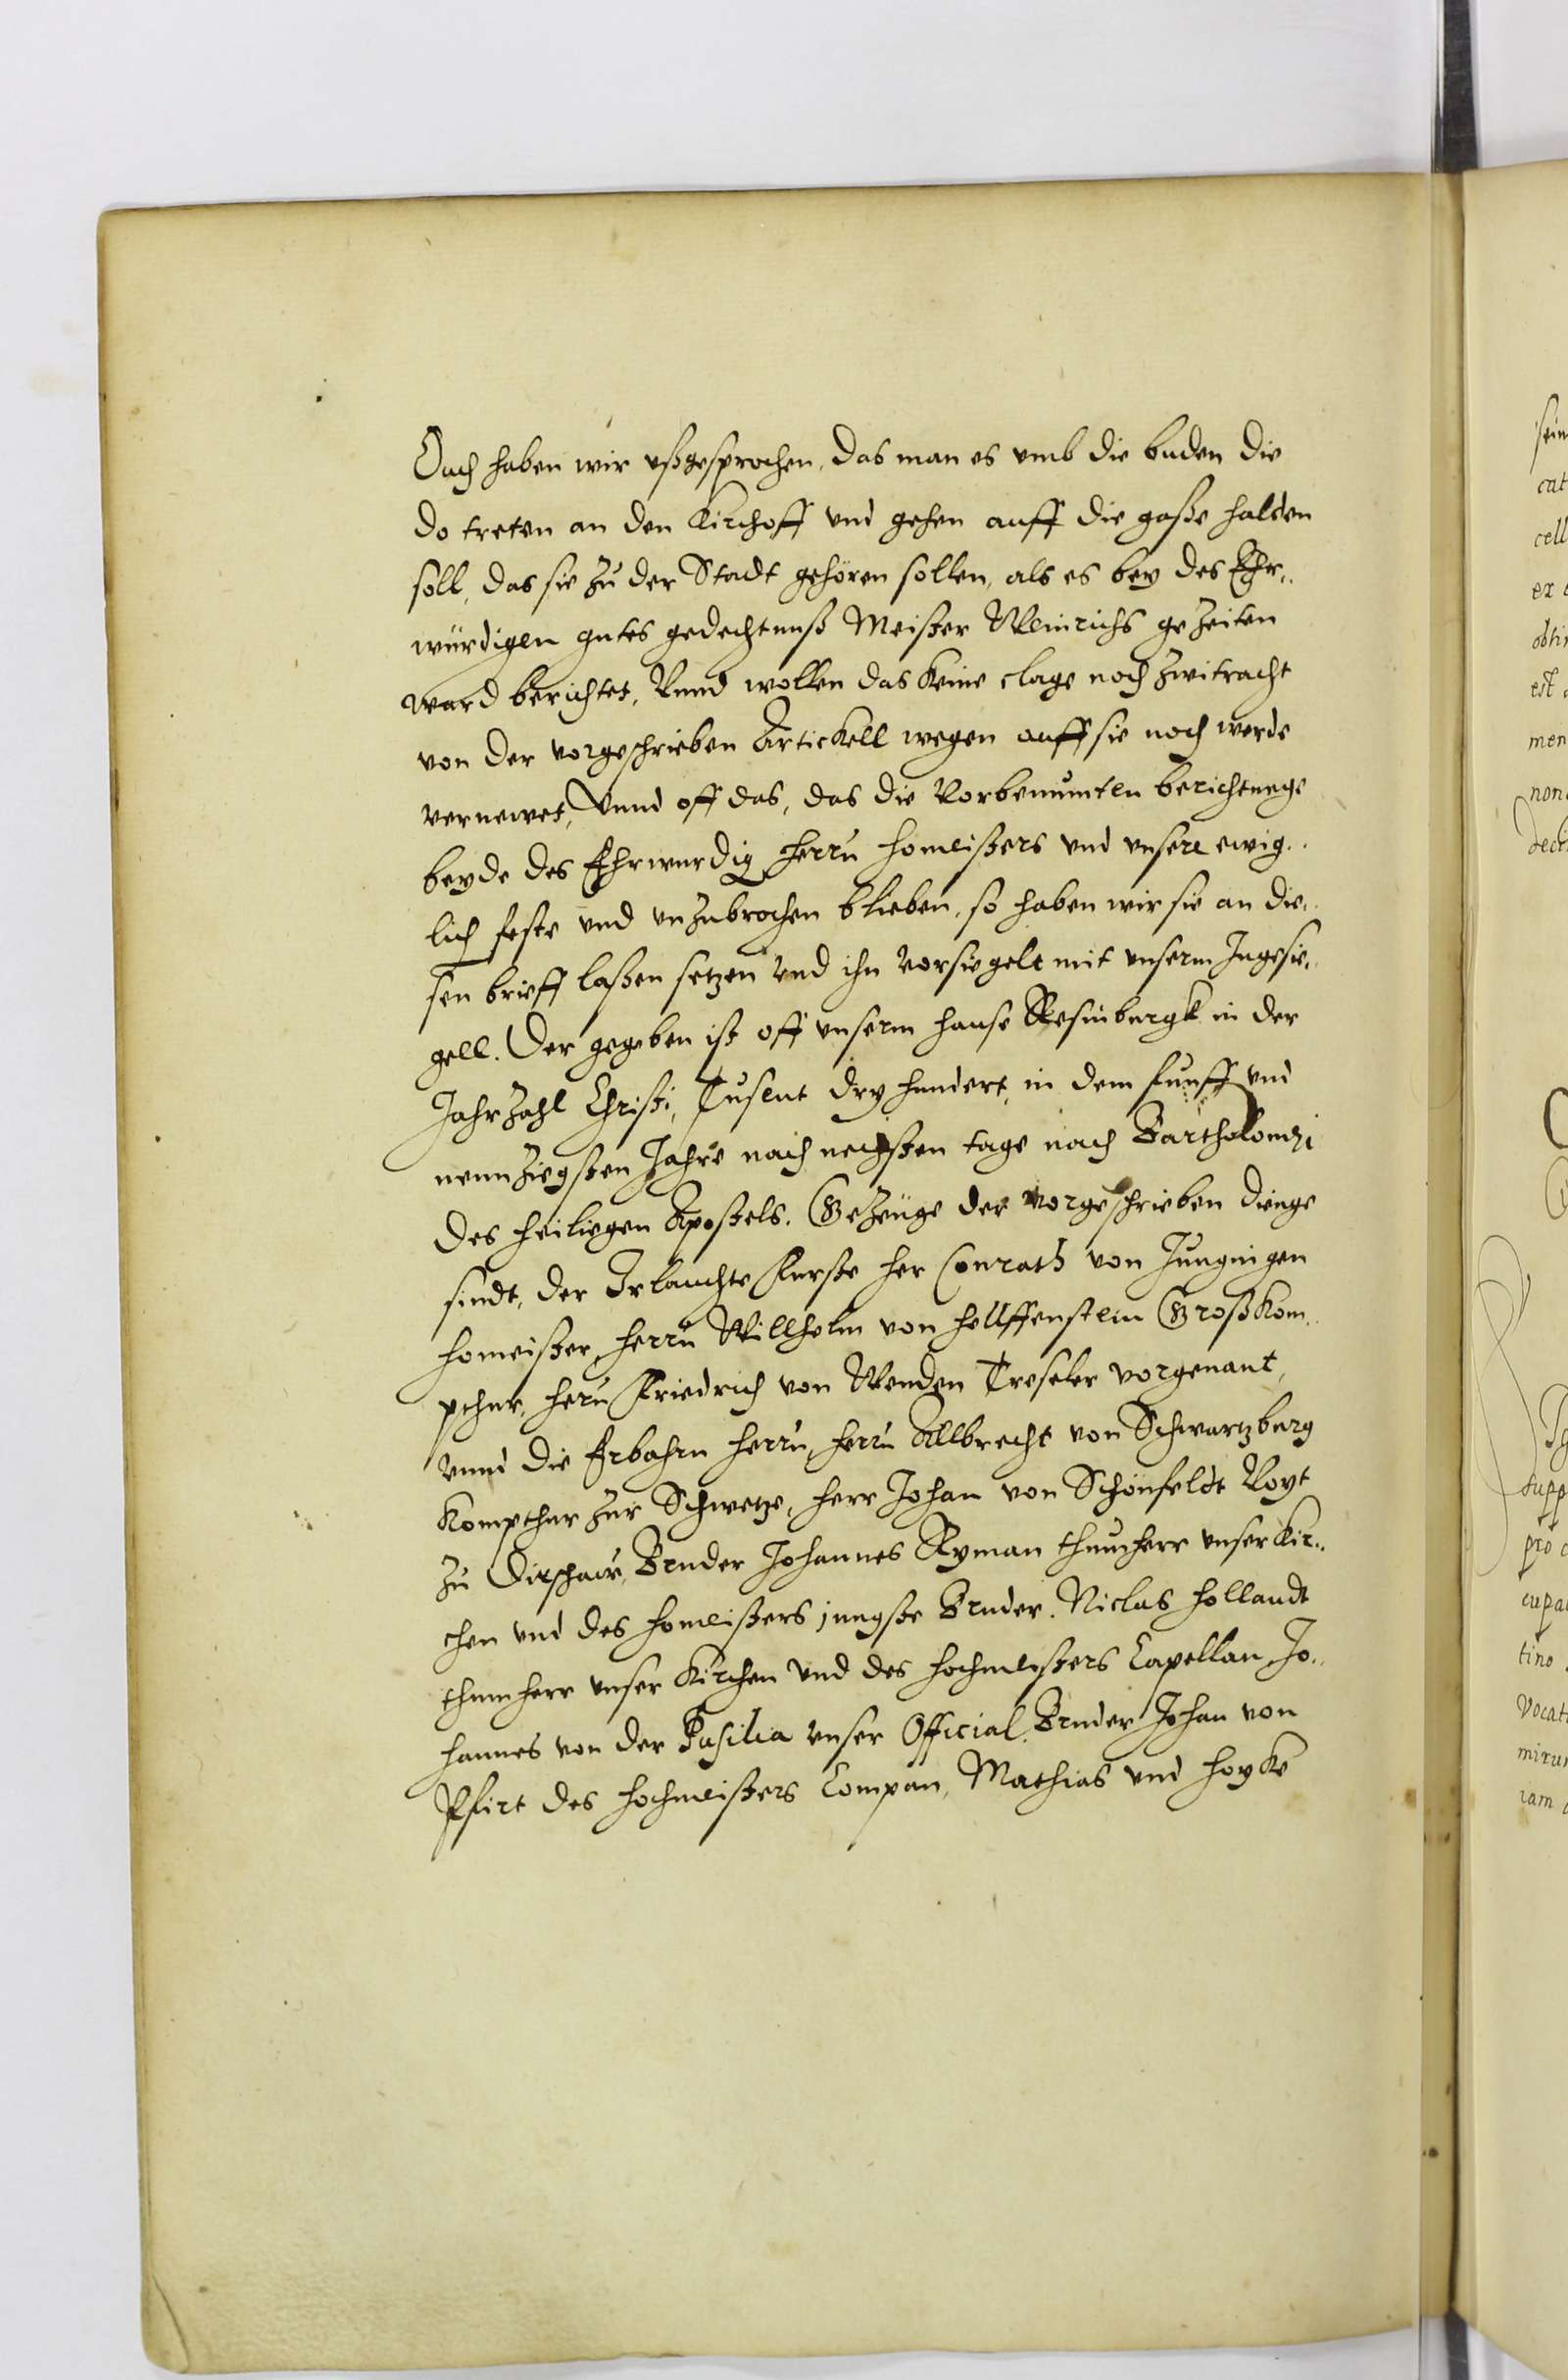 Ouch haben wir ußgesprochen, das man es vmb die buden die
do treten an den Kirchoff vnd gehen auff die gaße halden
soll, das sie zu der Stadt gehören sollen, als es bey des Ehr„
würdigen gutes gedechtnuß Meister Weinrichs gezeiten
ward berichtet, Vnnd wollen das keine clage noch zwitracht
von der vorgeschrieben Artickell wegen auff sie noch werde
vernewet, Vnnd off das, das die Vorbenumten berichtunge
beyde des Ehrwurdig Herrn Homeisters vnd vnsere ewig„
lich feste vnd vnzubrochen blieben, so haben wir sie an die„
sen brieff laßen setzen vnd ihn vorsiegelt mit vnserm Ingesie„
gell. Der gegeben ist off vnserm hause Resinburgk in der
Jahrzahl Christi, Tusent dry hundert, in dem funff vnd
neunziegsten Jahre nach nechsten tage nach Bartholomei
des heiliegen Apostels. Gezeuge der vorgeschrieben dienge
sindt, der Irlauchte Furste her Conrath von Jungingen
Homeister, Herrn Willhelm von Hellffenstein Großkom„
pthur, Herrn Friedrich von Wenden Treseler vorgenant,
vnnd die Erbahrn Herrn, Herrn Allbrecht von Schwartzburg
Kompthur zur Schwetze, Herr Johan von Schönfeldt Voyt
zu Dirschaw, Bruder Johannes Ryman thumherr vnser Kir„
chen vnd des Homeisters jungste Bruder. Niclas Hollandt
thumherr vnser Kirchen vnd des Hochmeisters Capellan, Jo„
hannes von der Pusilia vnser Official, Bruder Johan von
Pfirt des Hochmeisters Compan, Mathias vnd Hoyke
sein
cat
cell
ex
obti
est
men
non
supp
pro
cupa
tino
vocat
miru
iam